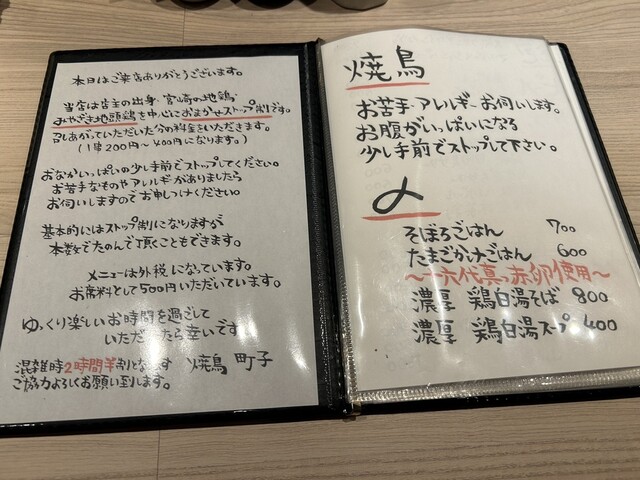 本日はご来店ありがとうございます。
当店は店主の出身"宮崎の地鶏"
みやざき地頭鶏を中心におまかせストップ制です。
召しあがっていただいた分の料金をいただきます。
(1串200円〜400円になります。)
おなかいっぱいの少し手前でストップしてください。
お苦手なものやアレルギーがありましたら
お伺いしますのでお申しつけください。
基本的にはストップ制になりますが
本数でたのんで頂くこともできます。
メニューは外税になっています。
お席料として500円いただいています。
ゆっくり楽しいお時間を過ごして
いただけたら幸いです
混雑時2時間半制となります 焼鳥 町子
ご協力よろしくお願い致します。
焼鳥
お苦手・アレルギーお伺いします。
お腹がいっぱいになる
少し手前でストップして下さい。
〆
そぼろごはん 700
たまごかけごはん 600
〜十六代真っ赤卵使用〜
濃厚 鶏白湯そば 800
濃厚 鶏白湯スープ 400